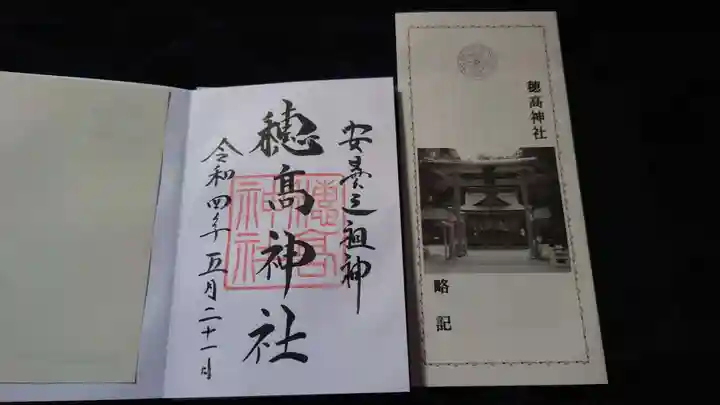 安曇之祖神
穂高神社
令和四年五月二十一日
穂高
神社
穂高神社
略記